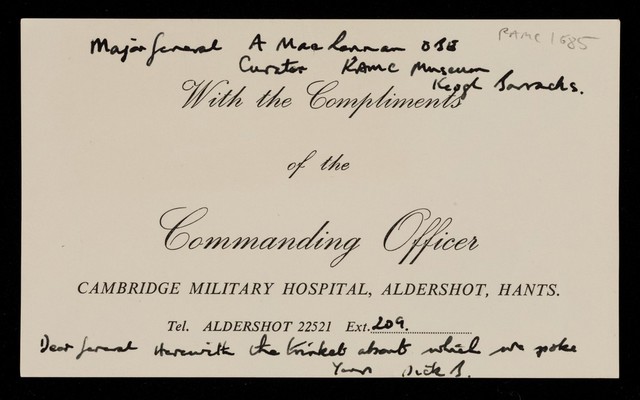 RAMC 1685
Major General A MacLennan OBE
Curator RAMC Museum
Keogh Barracks.
With the Compliments
of the
Commanding Officer
CAMBRIDGE MILITARY HOSPITAL, ALDERSHOT, HANTS.
Tel. ALDERSHOT 22521 Ext. 209.
Dear General Herewith the trinket about which we spoke
Yours Dick B.